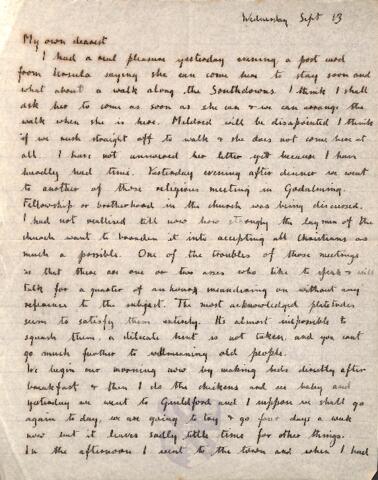 Wednesday Sept 13
My own dearest
I had a real pleasure yesterday evening, a post card
from Ursula saying she can come here to stay soon and
what about a walk along the Southdowns. I think I shall
ask her to come as soon as she can & we can arrange the
walk when she is here. Mildred will be disapointed I think
if we rush straight off to walk & she does not come here at
all. I have not answered her letter yet because I have
hardly had time. Yesterday evening after dinner we went
to another of those religious meeting in Godalming.
Fellowship or brotherhood in the church was being discussed.
I had not realised till now how strongly the laymen of the
church want to broaden it into accepting all christians as
much as possible. One of the troubles of those meetings
is that there are one or two asses who like to speak & will
talk for a quarter of an hour, meandering on without any
reference to the subject. The most acknowledged platitudes
seem to satisfy them entirely. Its almost impossible to
squash them, a delicate hint is not taken, and you cant
go much further to old people.
We begin our morning now by making beds directly after
breakfast & then I do the chickens and see baby and
yesterday we went to Guildford and I suppose we shall go
again to day, we are going to try & go four days a week
now but it leaves sadly little time for other things.
In the afternoon I went to the town and when I had